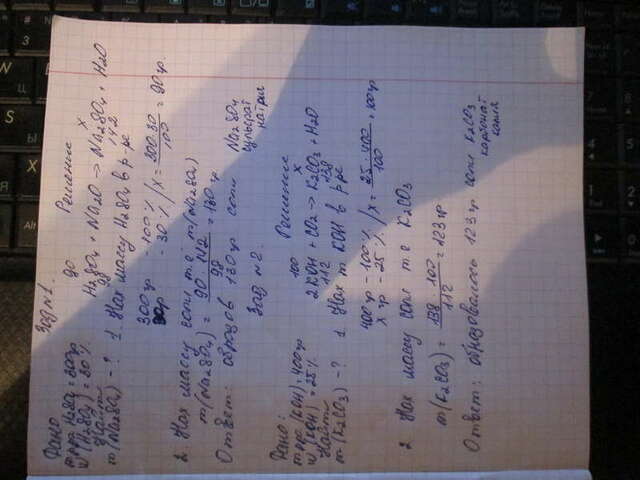 Зад №1.
Дано
m рра H2SO4 = 300гр
w (H2SO4) = 30%
Найти
m (Na2SO4) - ?
Решение
90 x
H2SO4 + Na2O → Na2SO4 + H2O
98 142
1. Нах массу H2SO4 в р ре
300 гр - 100%
гр - 30% / x = 300·30 / 100 = 90 гр.
2. Нах массу соли т.е. m(Na2SO4)
m(Na2SO4) = 90·142 / 98 = 130 гр.
Ответ: образов 130 гр соли Na2SO4
сульфат
натрия
Зад №2.
Дано:
m рра (KOH) = 400гр
w (KOH) = 25%
Найти
m (K2CO3) - ?
Решение
100 x
2KOH + CO2 → K2CO3 + H2O
112 138
1. Нах m KOH в р ре
400 гр - 100%
x гр - 25% / x = 25·400 / 100 = 100 гр
2 Нах массу соли т.е K2CO3
m(K2CO3) = 138·100 / 112 = 123 гр
Ответ: образовалось 123 гр соли K2CO3
карбонат
калия